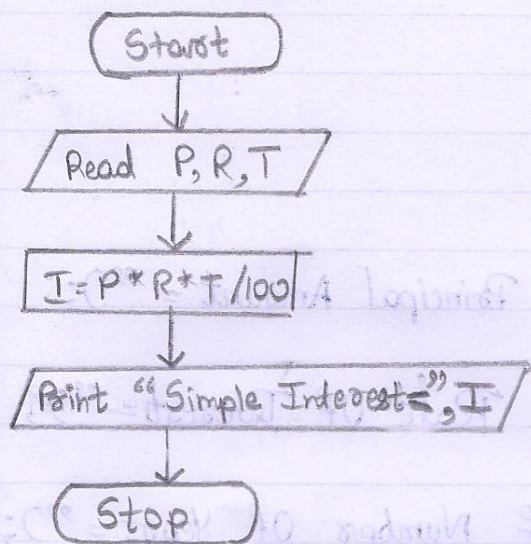 Start
Read P, R, T
I = P * R * T /100
Print “Simple Interest=”, I
Stop